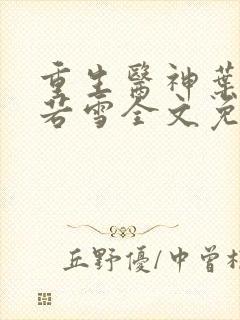 重生醫神葉
若雪全文免
丘野優/中曾根